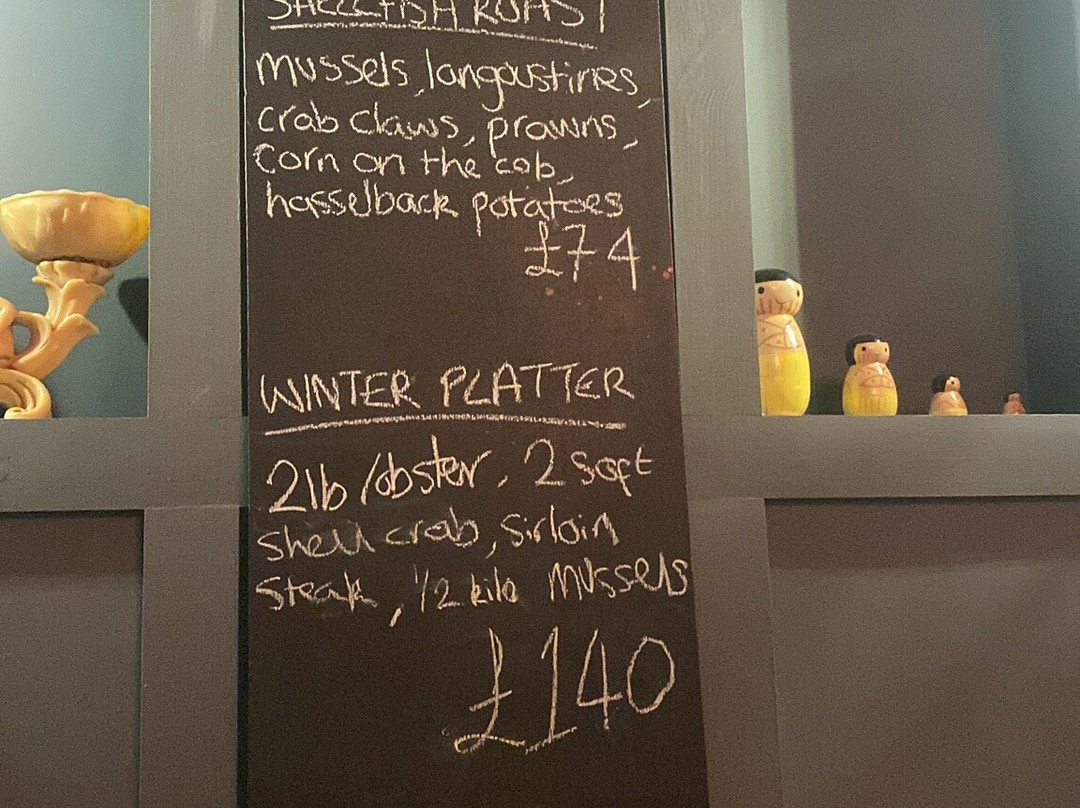 SHELLFISH ROAST
mussels, langoustines,
crab claws, prawns,
Corn on the cob,
hasselback potatoes
£74
WINTER PLATTER
2lb lobster, 2 soft
shell crab, sirloin
steak, 1/2 kilo mussels
£140